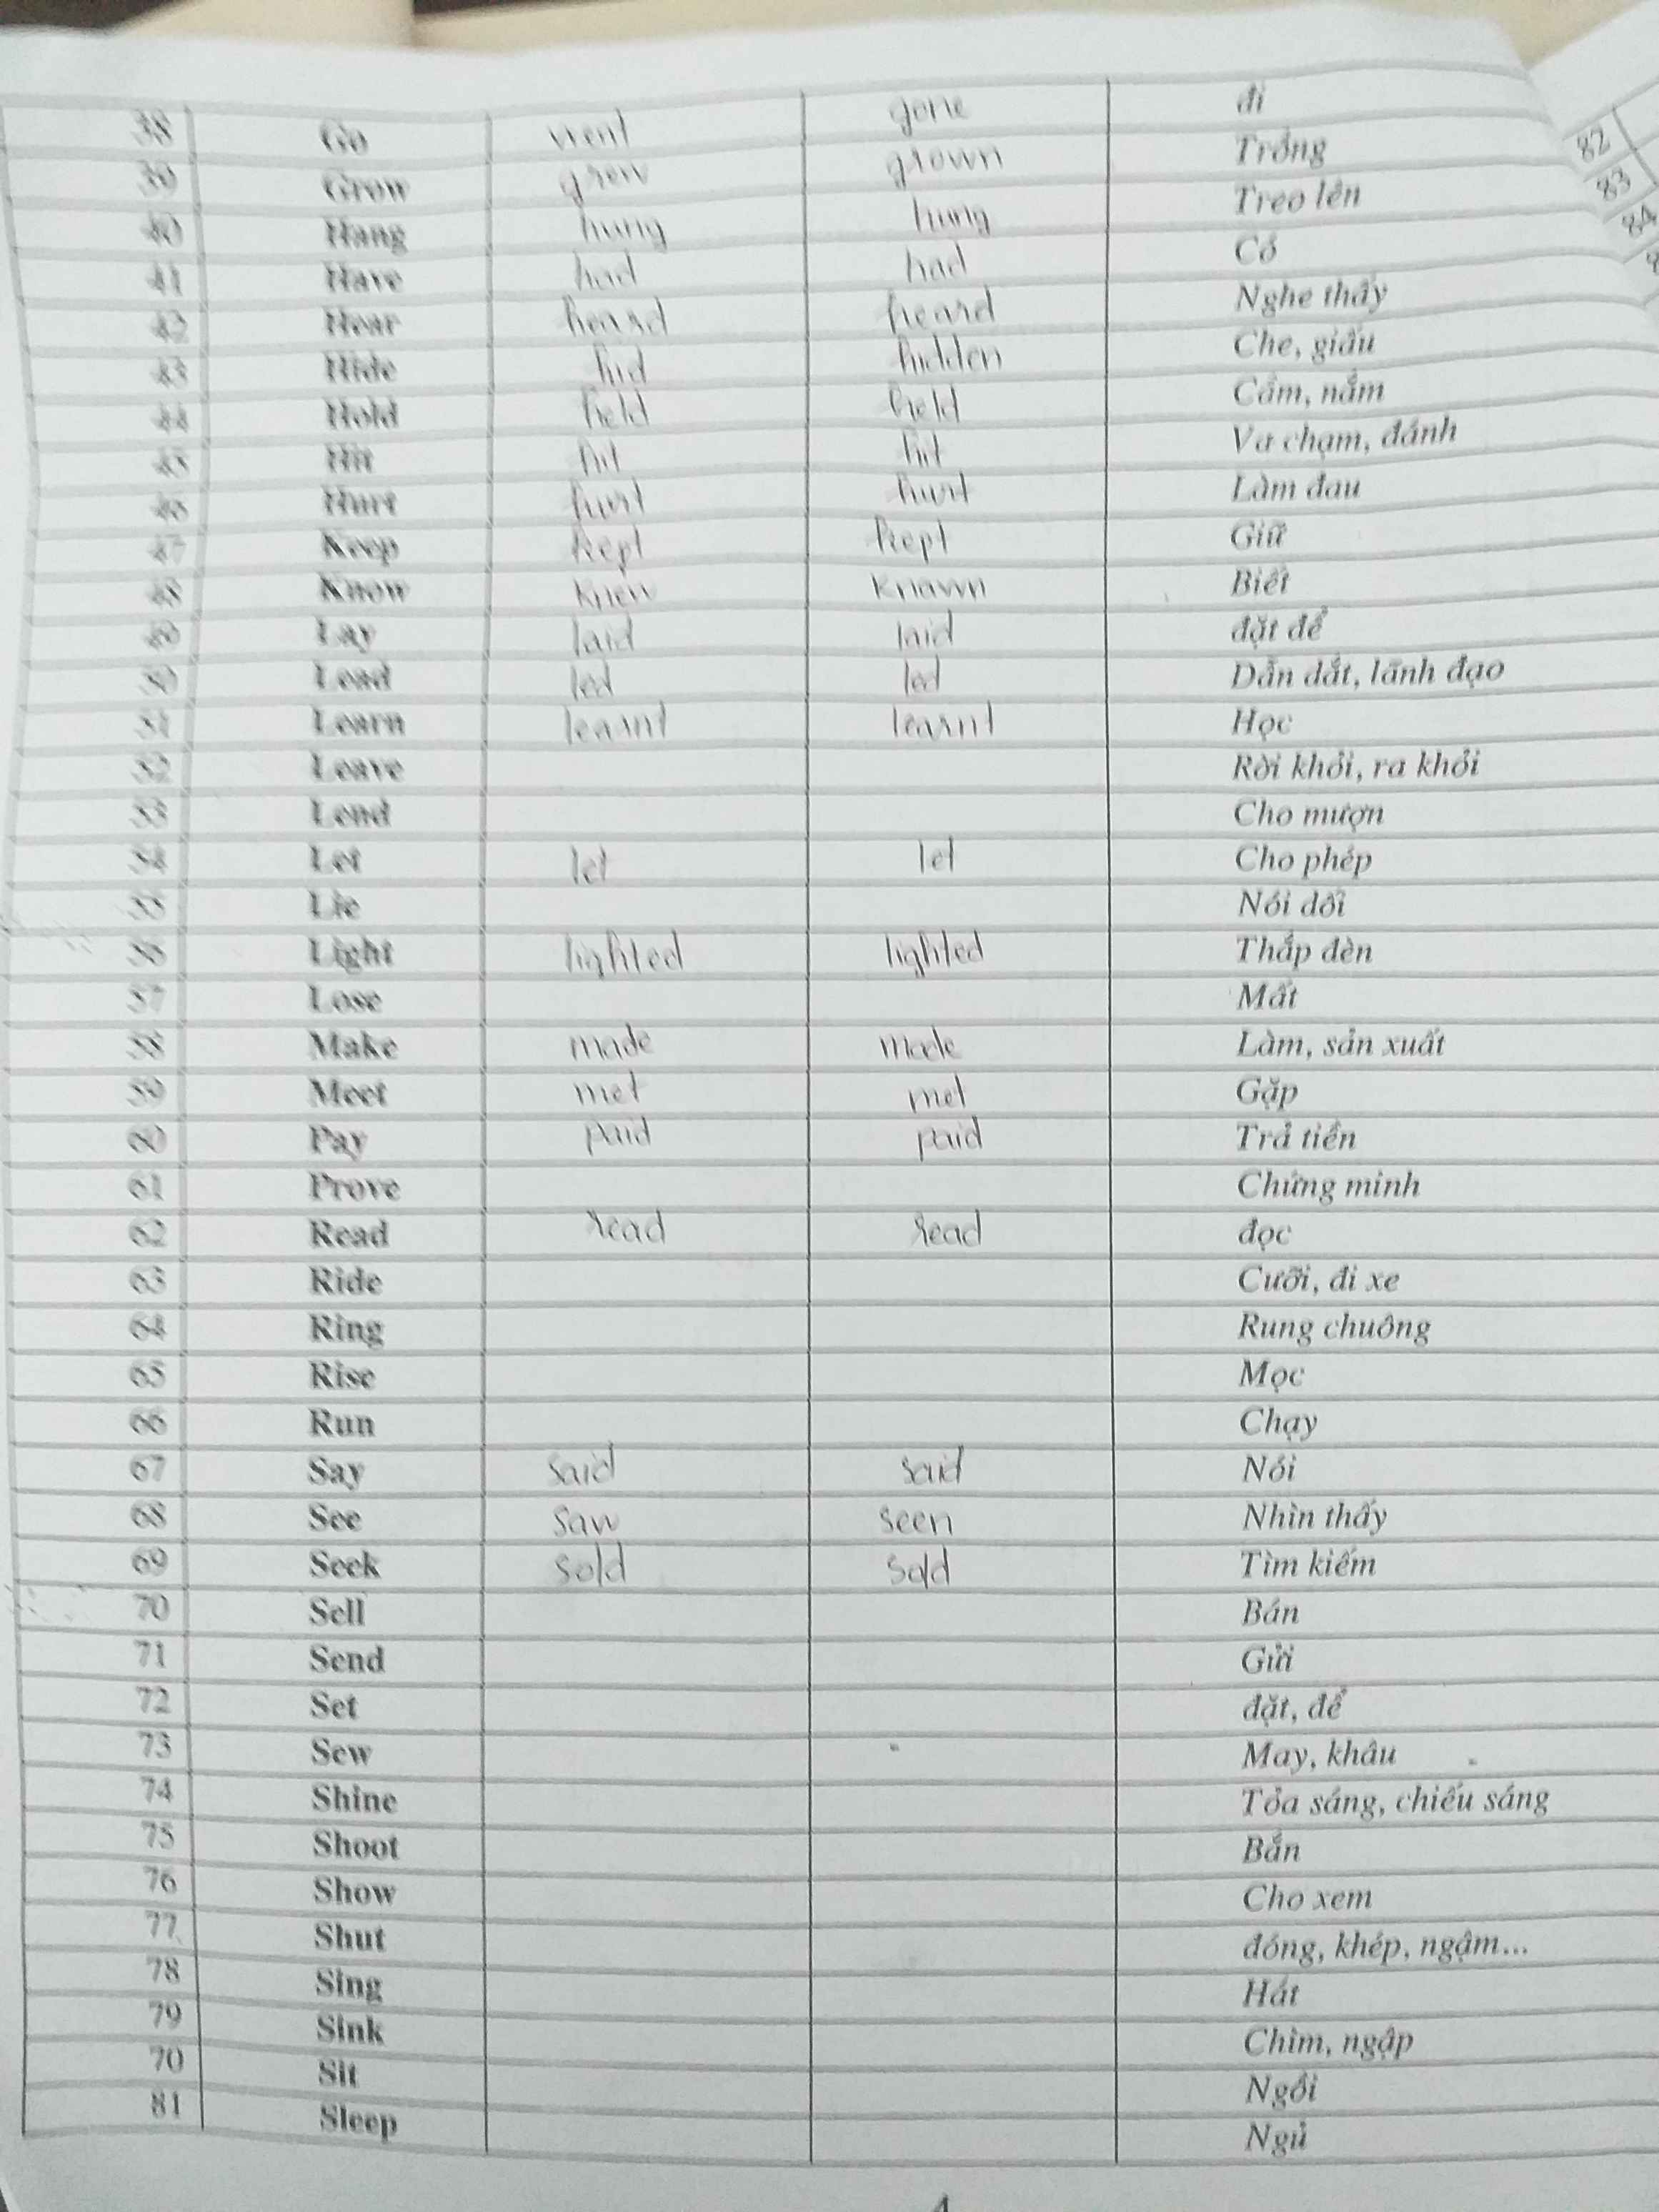 38 Go went gone đi
39 Grow grew grown Trồng
40 Hang hung hung Treo lên
41 Have had had Có
42 Hear heard heard Nghe thấy
43 Hide hid hidden Che, giấu
44 Hold held held Cầm, nắm
45 Hit hit hit Va chạm, đánh
46 Hurt hurt hurt Làm đau
47 Keep kept kept Giữ
48 Know knew known Biết
49 Lay laid laid đặt để
50 Lead led led Dẫn dắt, lãnh đạo
51 Learn learnt learnt Học
52 Leave Rời khỏi, ra khỏi
53 Lend Cho mượn
54 Let let let Cho phép
55 Lie Nói dối
56 Light lighted lighted Thắp đèn
57 Lose Mất
58 Make made made Làm, sản xuất
59 Meet met met Gặp
60 Pay paid paid Trả tiền
61 Prove Chứng minh
62 Read read read đọc
63 Ride Cưỡi, đi xe
64 Ring Rung chuông
65 Rise Mọc
66 Run Chạy
67 Say said said Nói
68 See saw seen Nhìn thấy
69 Seek sold sold Tìm kiếm
70 Sell Bán
71 Send Gửi
72 Set đặt, để
73 Sew May, khâu
74 Shine Tỏa sáng, chiếu sáng
75 Shoot Bắn
76 Show Cho xem
77 Shut đóng, khép, ngậm...
78 Sing Hát
79 Sink Chìm, ngập
70 Sit Ngồi
81 Sleep Ngủ
82
83
84